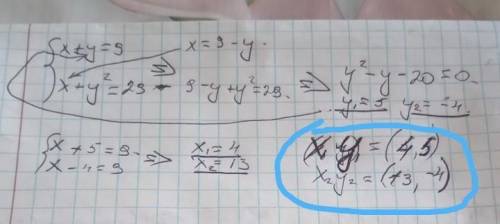 {x+y=9 x=9-y.
{x+y²=29 ⇒ 9-y+y²=29. ⇒ y²-y-20=0.
y₁=5 y₂=-4.
{x+5=9 ⇒ x₁=4
x-4=9 x₂=13
x₁ y₁=(4,5)
x₂y₂=(13,-4)